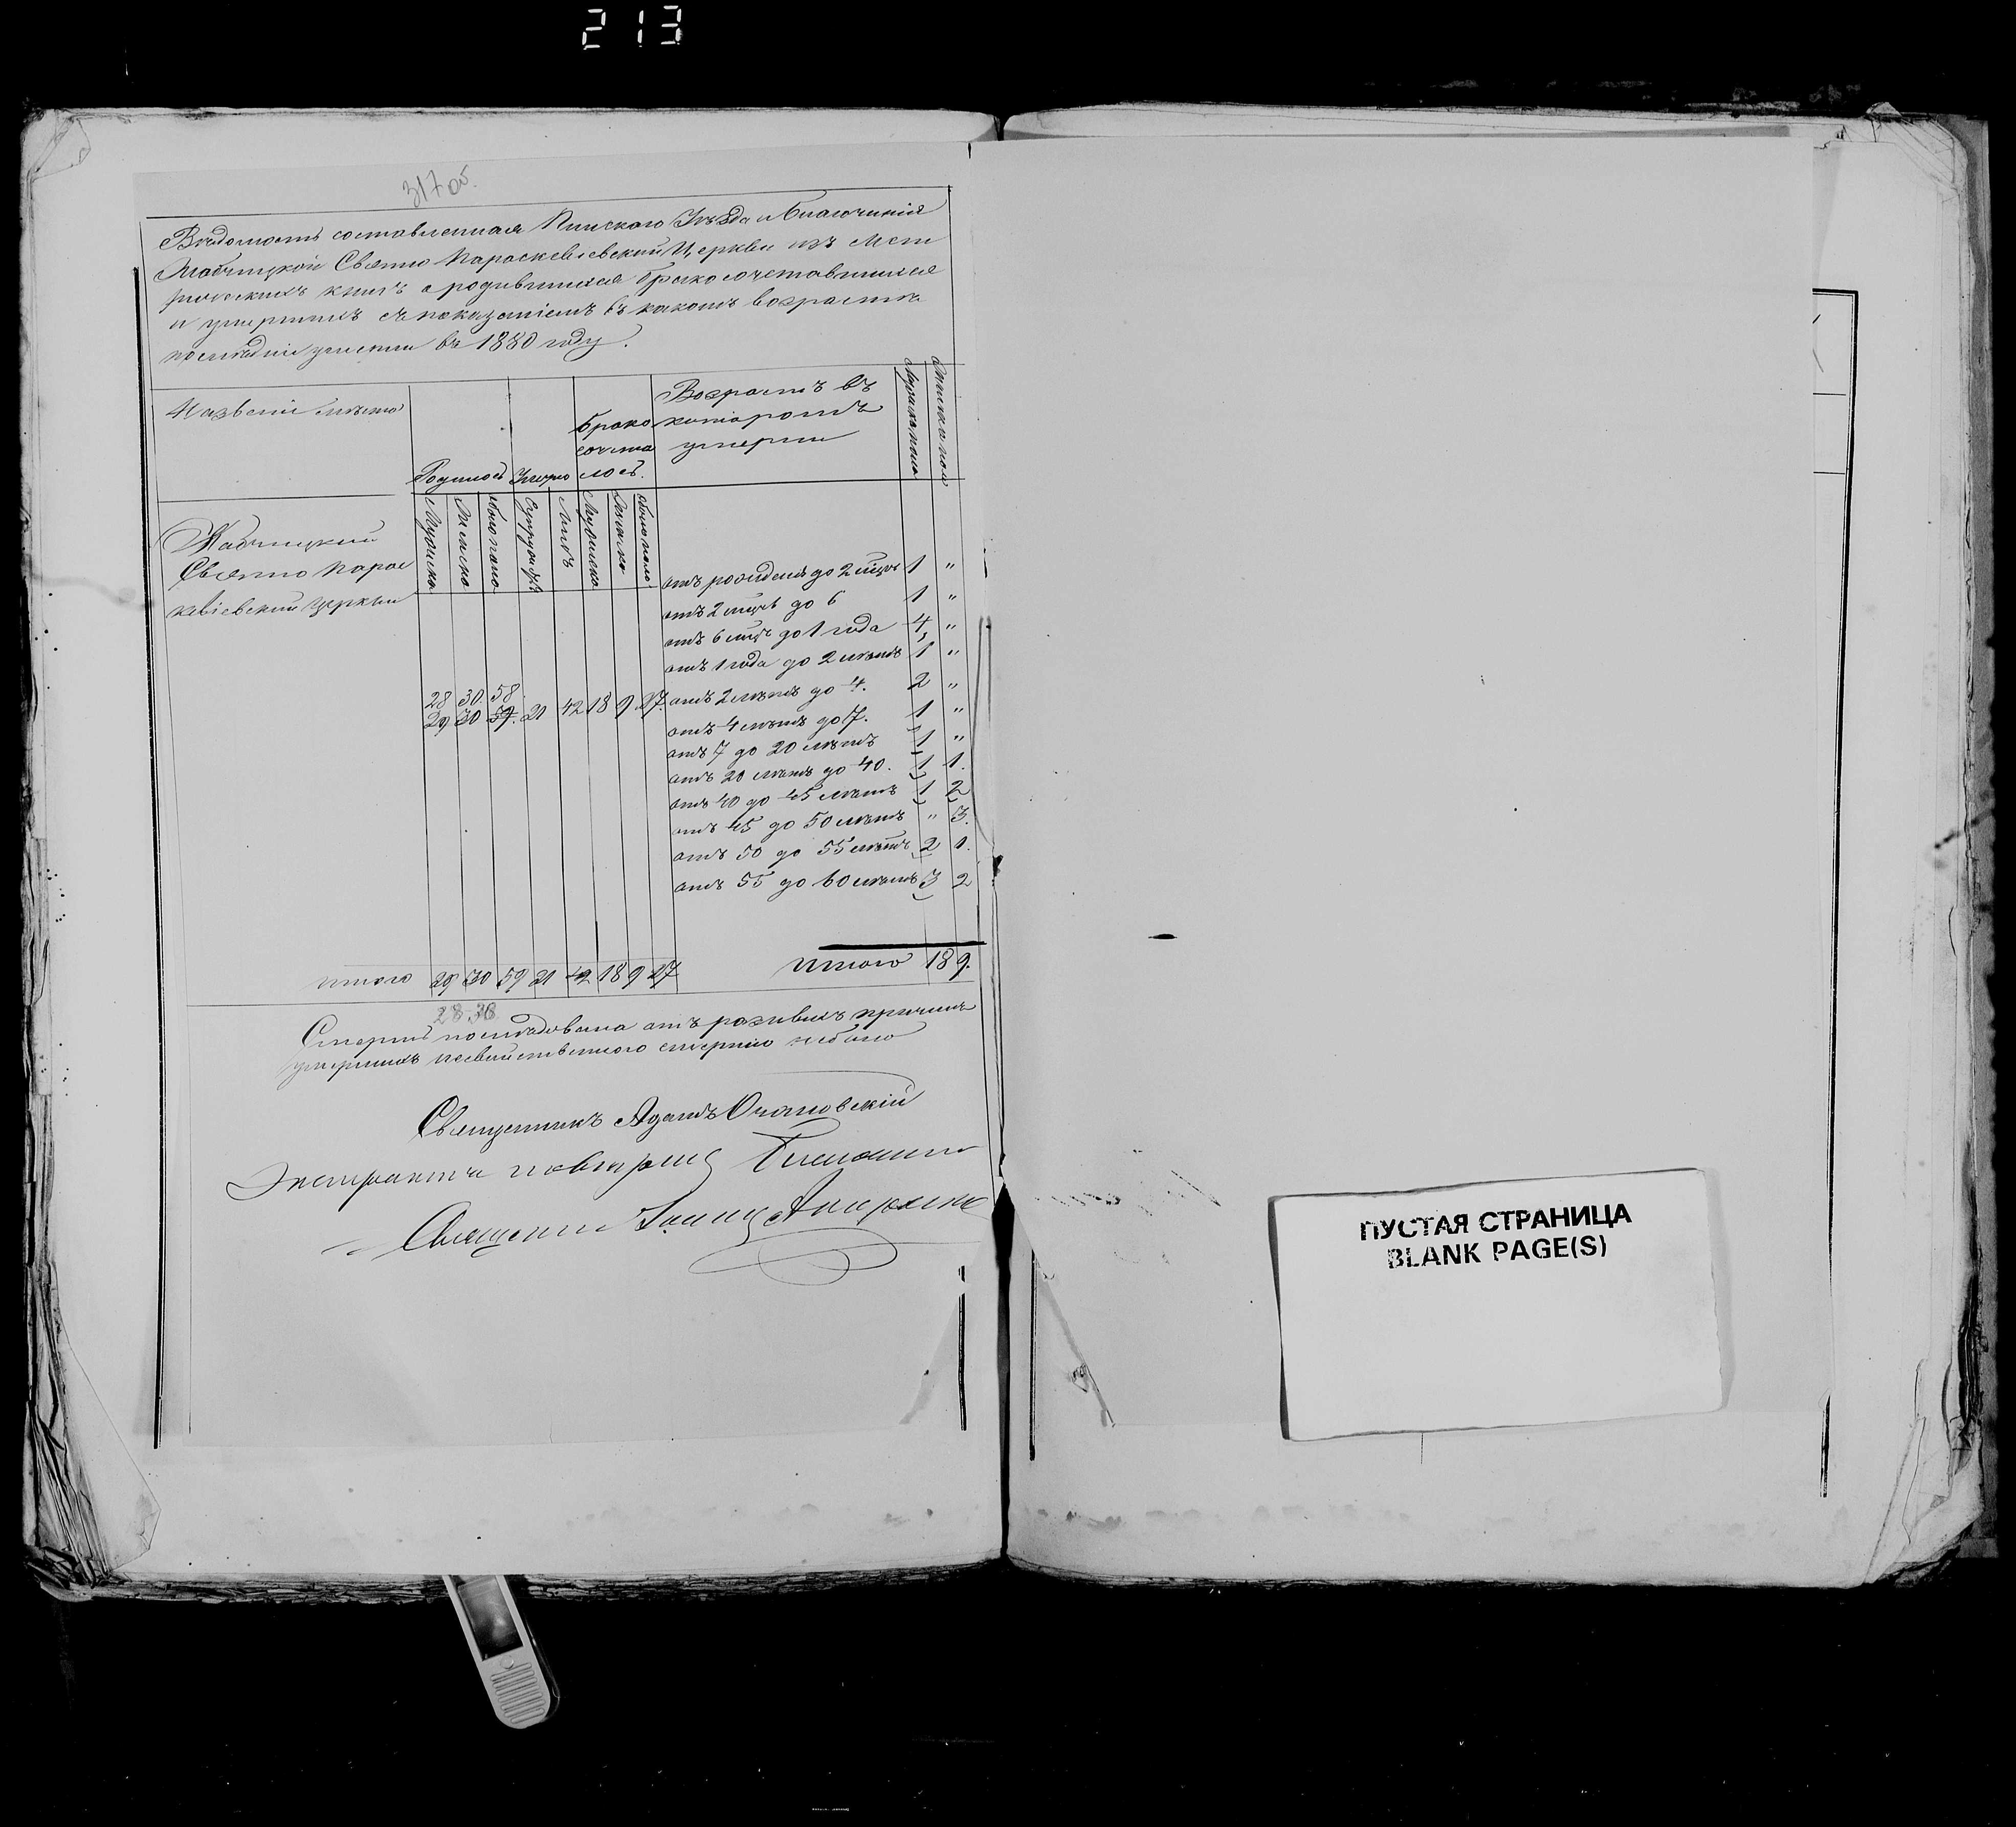 213
317 об.
Вѣдомость составленная Пинского Уѣзда и Благочинія
Жабчицкой Свято Параскевіевской Церкви изъ Мет
рическихъ книгъ о родившихся бракосочетавшихся
и умершихъ съ показаніемъ въ какомъ возрастѣ
послѣдніи умерли въ 1880 году.
Названіе мѣста
Родилось
Умерло
Брако
сочета
лось.
Возрастъ въ
которомъ
умерли
Мужска пола
Женска пола
Мужеска
Женска
обоего пола
Лицъ
Мужеска
Женска
обоего пола
Жабчицкий
Свято Парас
кевіевский церкви
отъ рожденія до 2 мѣцъ 1 "
отъ 2 мѣцъ до 6 1 "
отъ 6 мѣцъ до 1 года 4 "
отъ 1 года до 2 лѣтъ 1 "
28 30. 58.
29 30 59. 21 42 18 9 27. отъ 2 лѣтъ до 4. 2 "
отъ 4 лѣтъ до 7. 1 "
отъ 7 до 20 лѣтъ 1 "
отъ 20 лѣтъ до 40. 1 1.
отъ 40 до 45 лѣтъ 1 2
отъ 45 до 50 лѣтъ " 3.
отъ 50 до 55 лѣтъ 2 1.
отъ 55 до 60 лѣтъ 3 2
итого 29 30 59 21 42 18 9 27 Итого 18 9.
28 30
Смерть послѣдовала отъ разныхъ причинъ
умершихъ насильственного смертію небыло
Священникъ Адамъ
Экстрактъ повѣрилъ Благочин
Священни
ПУСТАЯ СТРАНИЦА
BLANK PAGE(S)